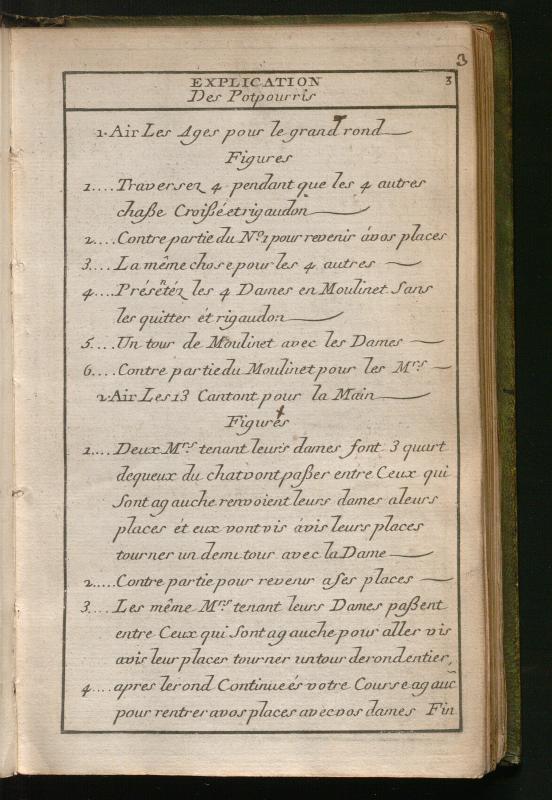 3
EXPLICATION 3
Des Potpourris
1. Air Les Ages pour le grand rond
Figures
1.... Traversez 4 pendant que les 4 autres
chaße Croißé et rigaudon
2.... Contre partie du No. 1 pour revenir á vos places
3.... La même chose pour les 4 autres
4.... Présẽtéz les 4 Dames en Moulinet Sans
les quitter ét rigaudon
5.... Un tour de Moulinet avec les Dames
6.... Contre partie du Moulinet pour les Mrs
2. Air Les 13 Cantont pour la Main
Figures
1.... Deux Mrs tenant leurs dames font 3 quart
de queux du chat vont paßer entre Ceux qui
Sont a gauche renvoient leurs dames a leurs
places ét eux vont vis á vis leurs places
tourner un demi tour avec la Dame
2..... Contre partie pour revenir a Ses places
3.... Les même Mrs tenant leurs Dames paßent
entre Ceux qui Sont a gauche pour aller vis
a vis leur places tourner un tour de rond entier,
4.... apres le rond Continueés votre Course a gauc̃
pour rentrer a vos places avec vos dames Fin